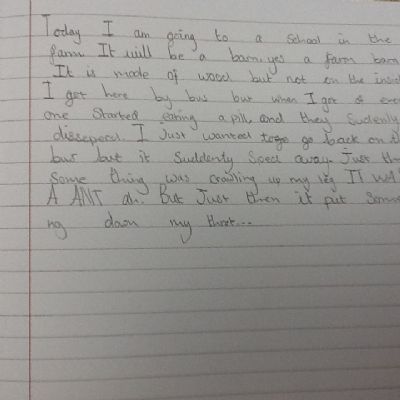 Today I am going to a school in the
farm It will be a barn, yes a farm barn
It is made of wood but not on the insid
I get here by bus but when I got of every
one started eating a pill, and they sudenly
disseperd. I Just wanted to go back on th
bus but it suddenly sped away. Just the
some thing was crawling up my leg IT WA
A ANT ah. But Just then it put some
ng down my throt...